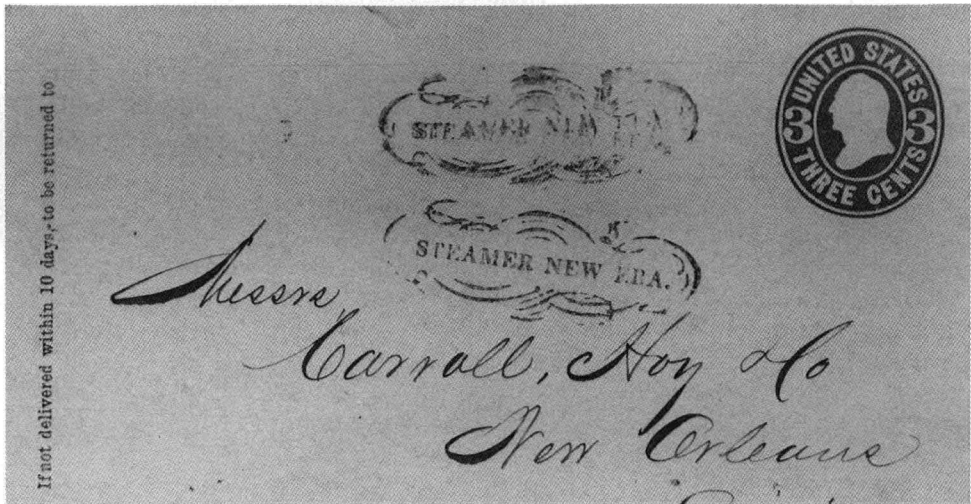 If not delivered within 10 days, to be returned to
STEAMER NEW ERA.
STEAMER NEW ERA.
UNITED STATES
3 3
THREE CENTS
Messrs
Carroll, Hoy & Co
New Orleans